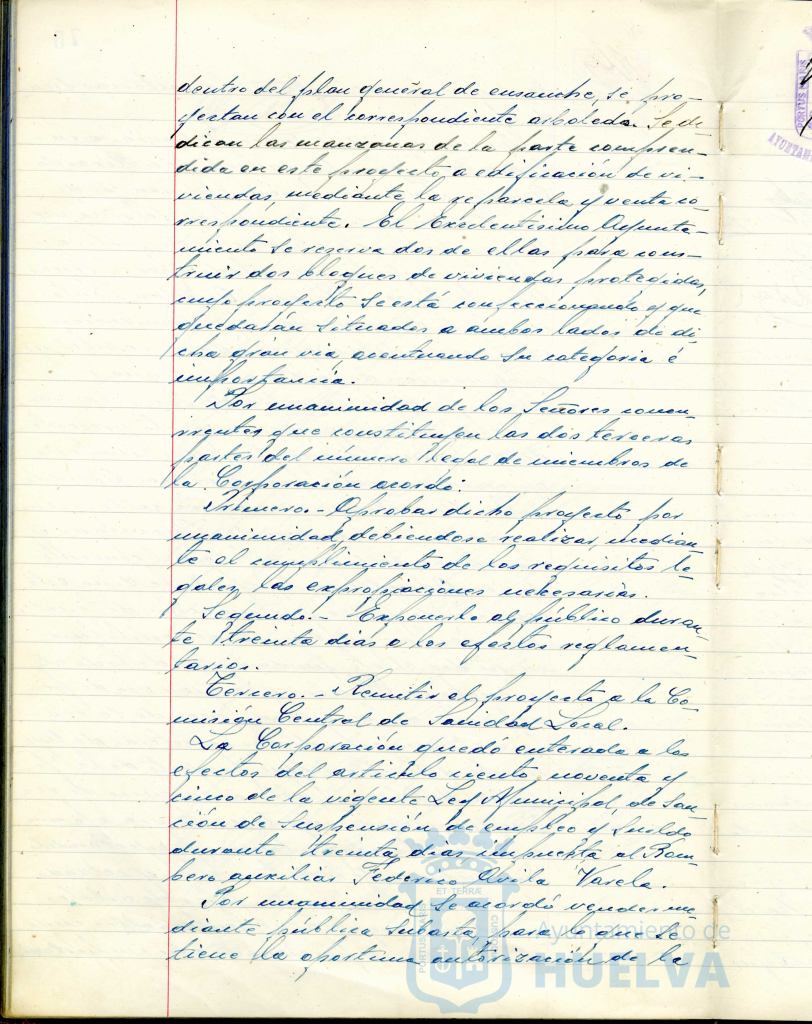 dentro del plan general de ensanche, se pro-
yectan con el correspondiente arboleda. Se de-
dican las manzanas de la parte compren-
dida en este proyecto, a edificación de vi-
viendas, mediante la reparcela y venta co-
rrespondiente. El Excelentísimo Ayunta-
miento se reserva dos de ellas para cons-
truir dos bloques de viviendas protegidas,
cuyo proyecto se está confeccionando y que
quedarán situados a ambos lados de di-
cha gran via, acentuando su categoria é
importancia.
Por unanimidad de los Señores concu-
rrentes que constituyen las dos terceras
partes del número legal de miembros de
la Corporación acordó:
Primero.- Aprobar dicho proyecto por
unanimidad, debiendose realizar, median-
te el cumplimiento de los requisitos le-
gales, las expropiaciones necesarias.
Segundo.- Exponerlo al público duran-
te treinta dias a los efectos reglamen-
tarios.
Tercero.- Remitir el proyecto a la Co-
misión Central de Sanidad Local.
La Corporación quedó enterada a los
efectos del articulo ciento noventa y
cinco de la vigente Ley Municipal, de San-
ción de suspensión de empleo y sueldo
durante treinta dias impuesta al Bom-
bero auxiliar Federico Avila Varela.
Por unanimidad se acordó vender me-
diante pública subasta, para lo que se
tiene la oportuna autorización de la
Ayuntamiento de
HUELVA